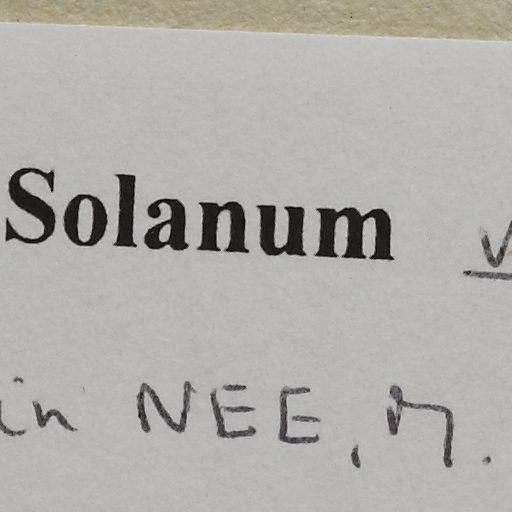 Solanum
in NEE,